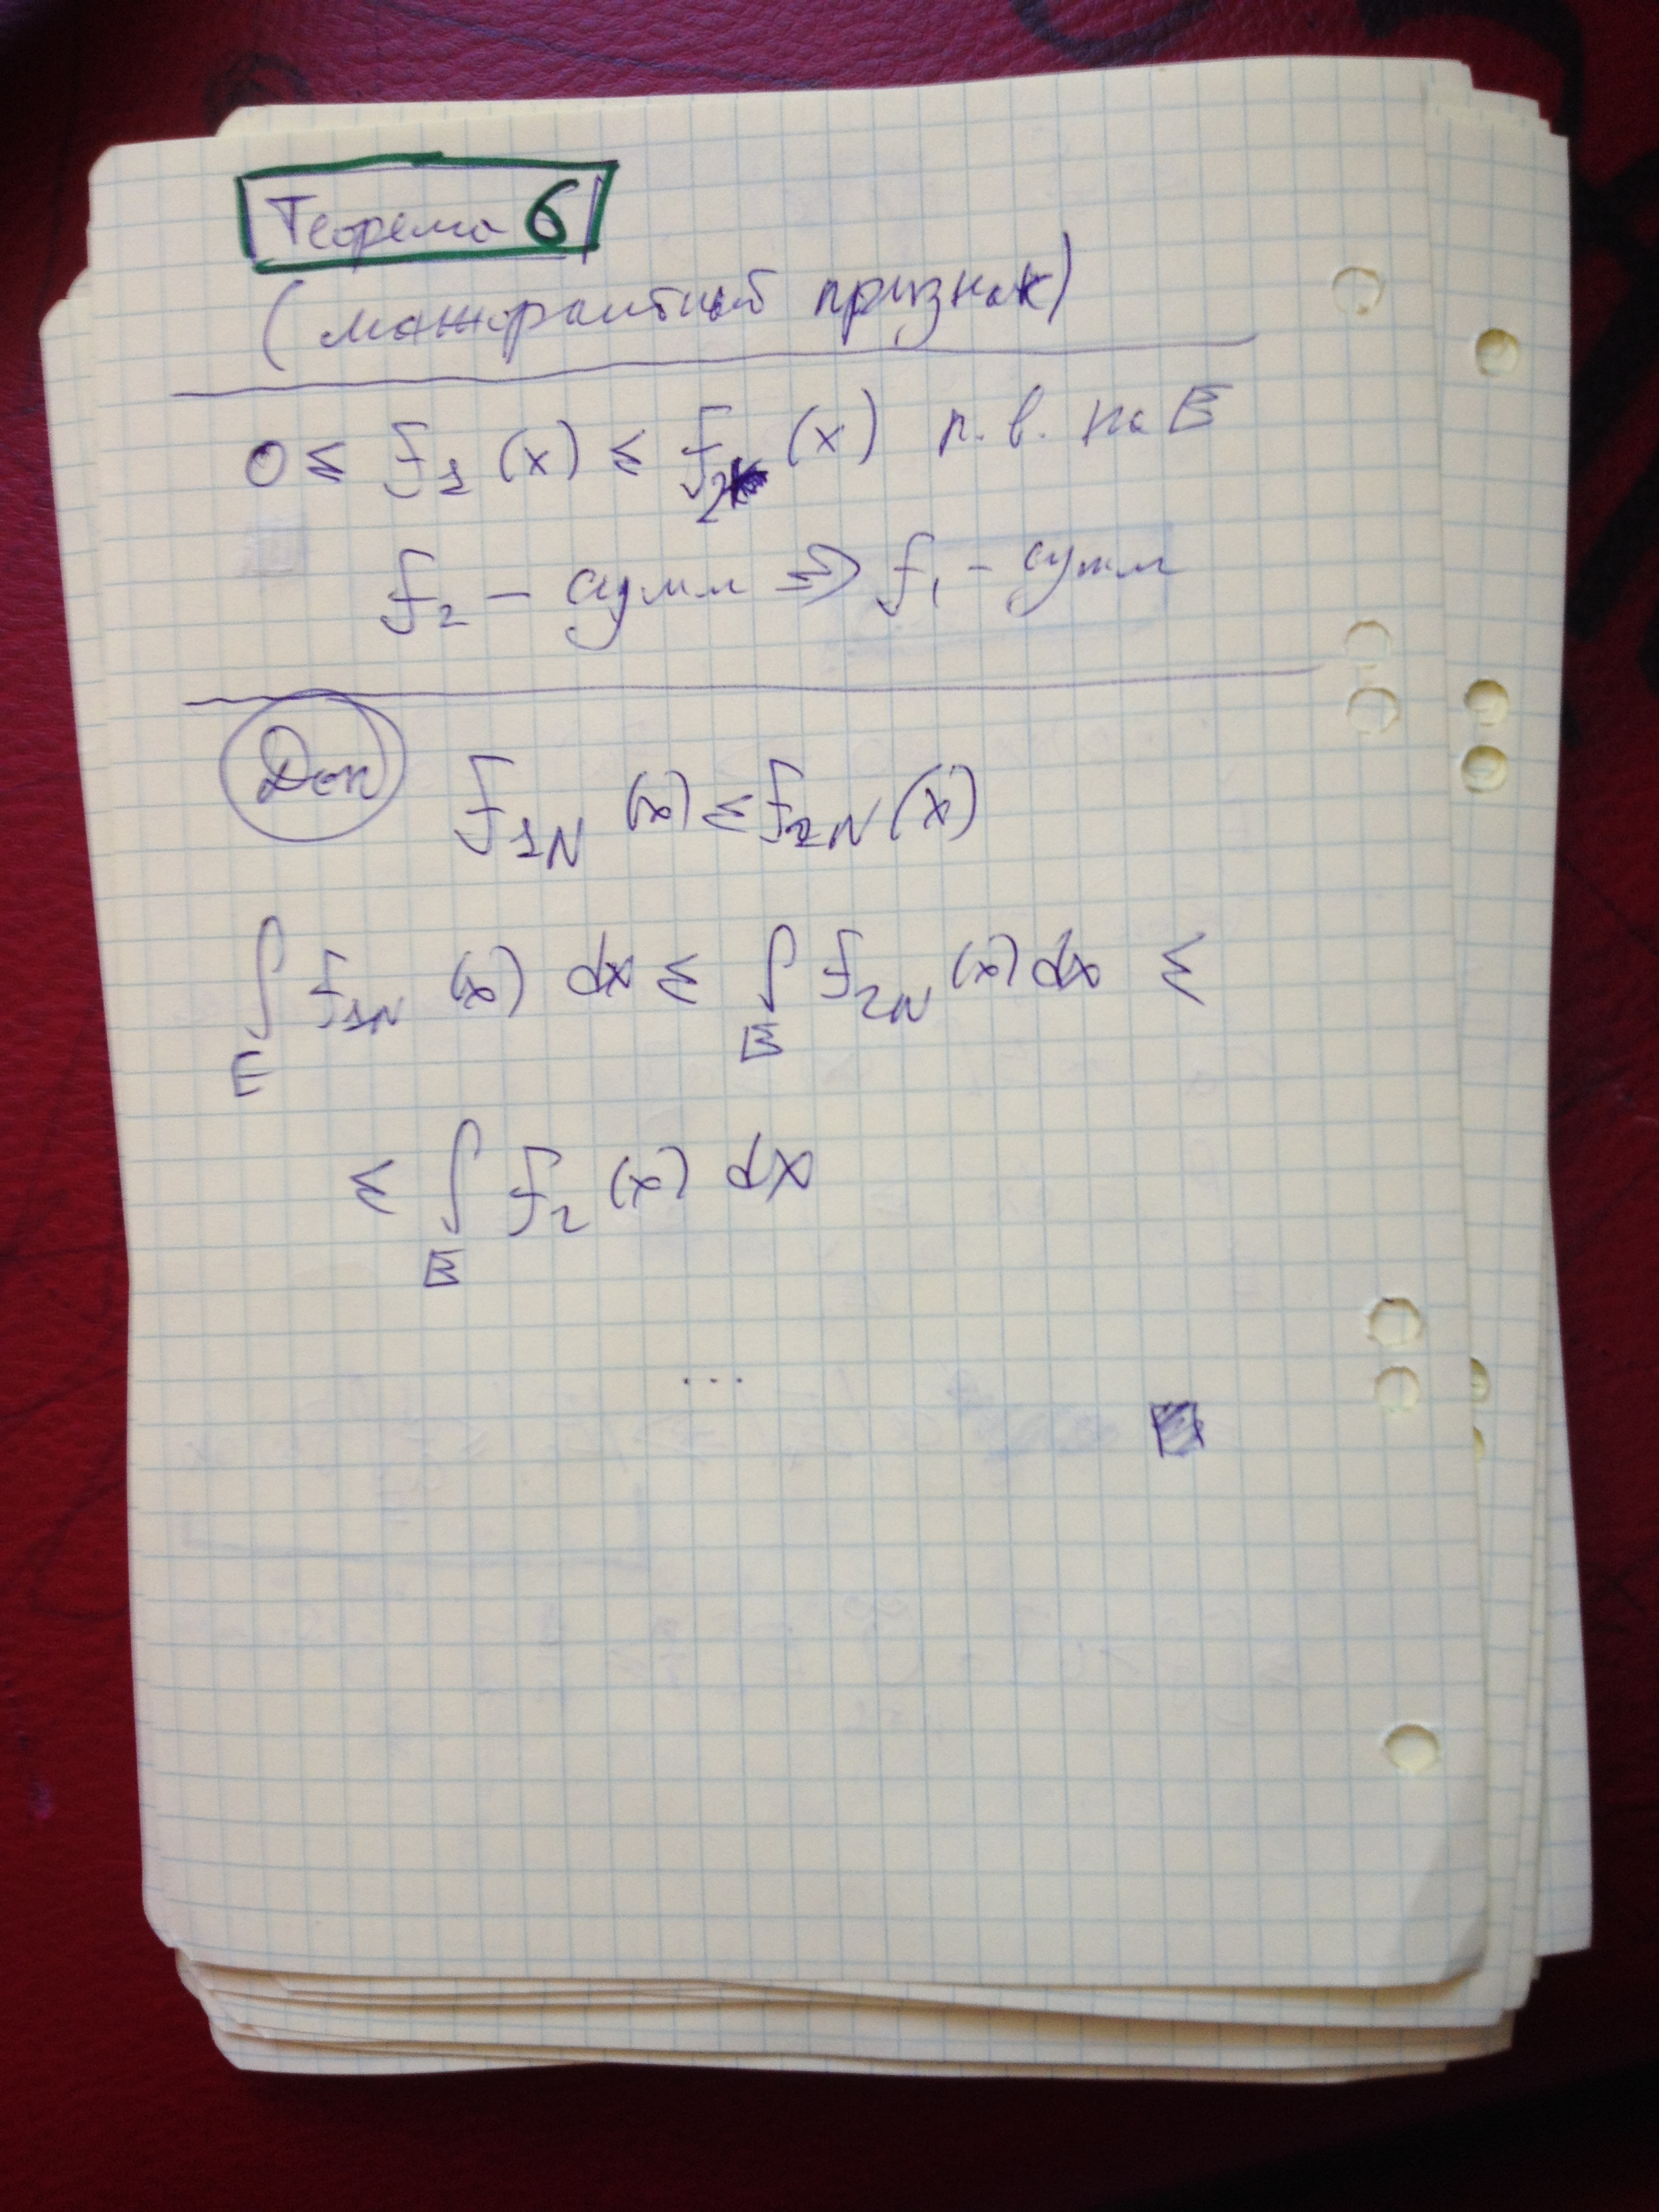 Теорема 6
(мажорантный признак)
0 ≤ f₁(x) ≤ f₂(x) п.в. на E
f₂ – сумм ⇒ f₁ – сумм
Док
f₁N(x) ≤ f₂N(x)
∫E f₁N(x) dx ≤ ∫E f₂N(x) dx ≤
≤ ∫E f₂(x) dx
...